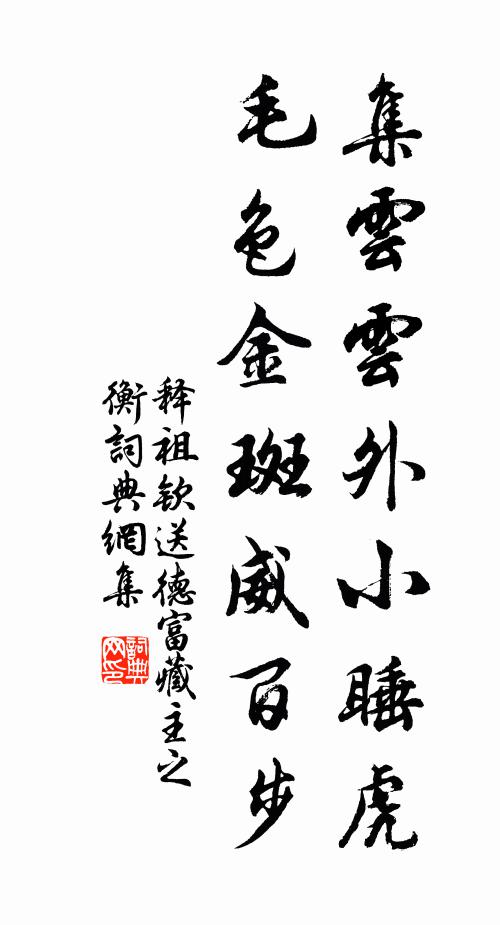 集雲雲外小睡虎
毛色金斑威百步
释祖欽送德富藏主之
衡詞典網集
詞典
网印